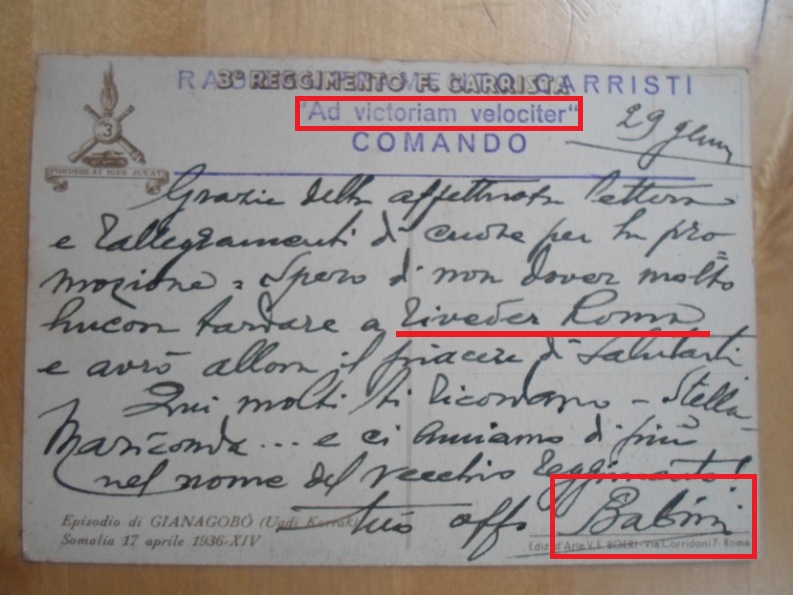 3º REGGIMENTO F. CARRISTA
CARRISTI
"Ad victoriam velociter"
COMANDO
29
3
PONDERE ET IGNE JUVAT
Grazie della affettuosa lettera
e rallegramenti di cuore per la pro=
mozione = Spero di non dover molto
ancor tardare a riveder Roma
e avrò allora il piacere di salutarti
Qui molti ti ricordano - Stella
Mariconda... e ci amiamo di più
nel nome del vecchio reggimento!
tuo aff Babini
Episodio di GIANAGOBÒ (Uadi Korrak)
Somalia 17 aprile 1936-XIV
Ediz. d'Arte V. E. BOERI - Via Corridoni 7 - Roma